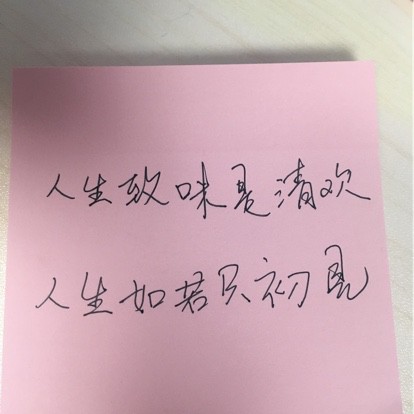 人生致味是清欢
人生如若只初见